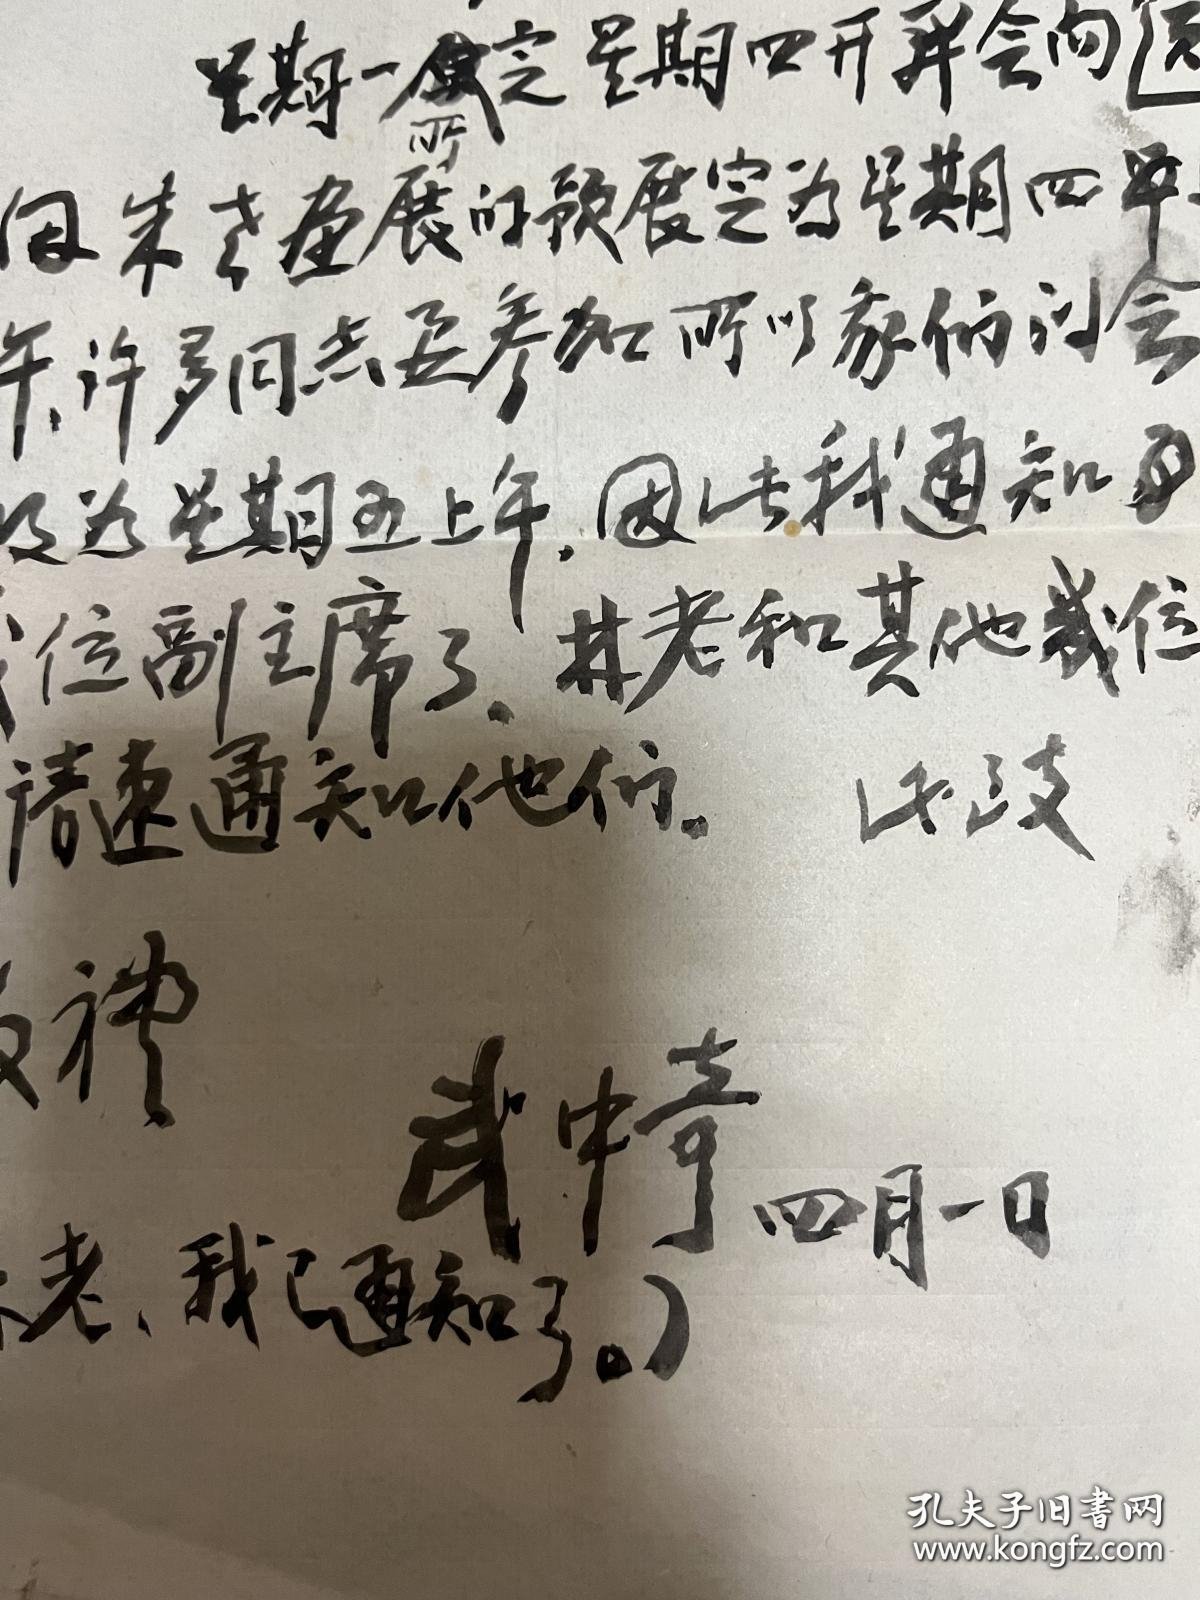 星期一所定星期四开群会向
因朱老画展的预展定为星期四上
午,许多同志要参加所以我们的会
改为星期五上午.因此我通知
几位副主席了、林老和其他几位
请速通知他们。 此致
敬礼
武中奇 四月一日
老、我已通知了。)
孔夫子旧书网
www.kongfz.com